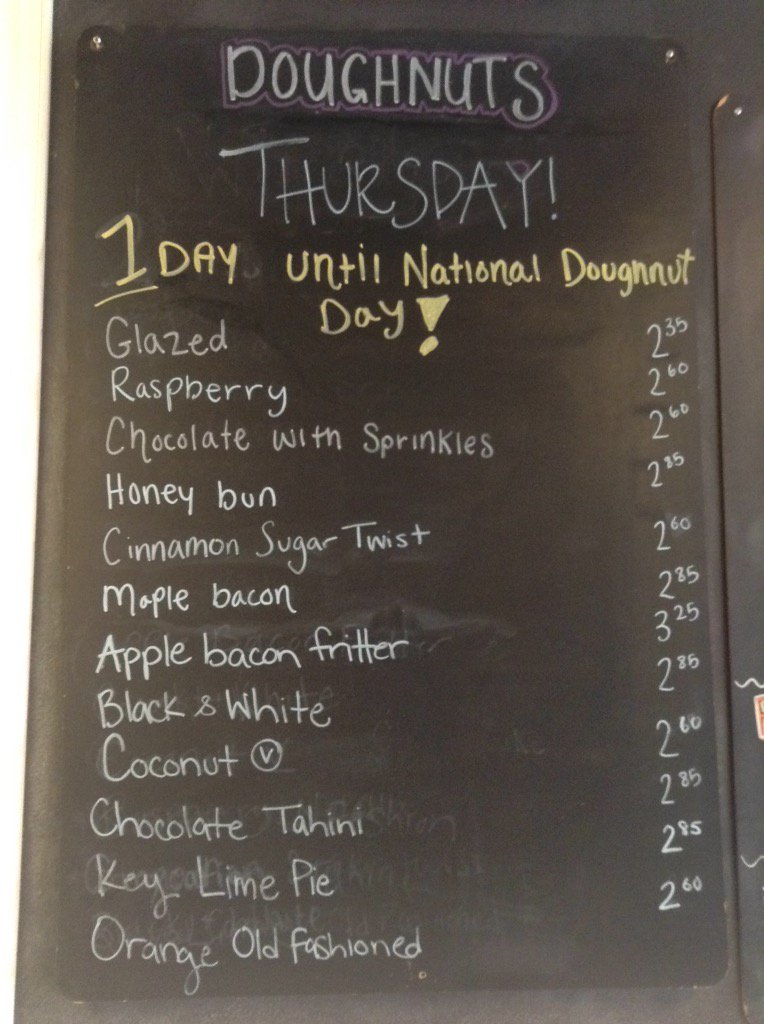 DOUGHNUTS
THURSDAY!
1 DAY until National Doughnut
Day!
Glazed 2.35
Raspberry 2.60
Chocolate with Sprinkles 2.60
Honey bun 2.85
Cinnamon Sugar Twist 2.60
Maple bacon 2.85
Apple bacon fritter 3.25
Black & White 2.85
Coconut Ⓥ 2.60
Chocolate Tahini 2.85
Key Lime Pie 2.85
Orange Old Fashioned 2.60